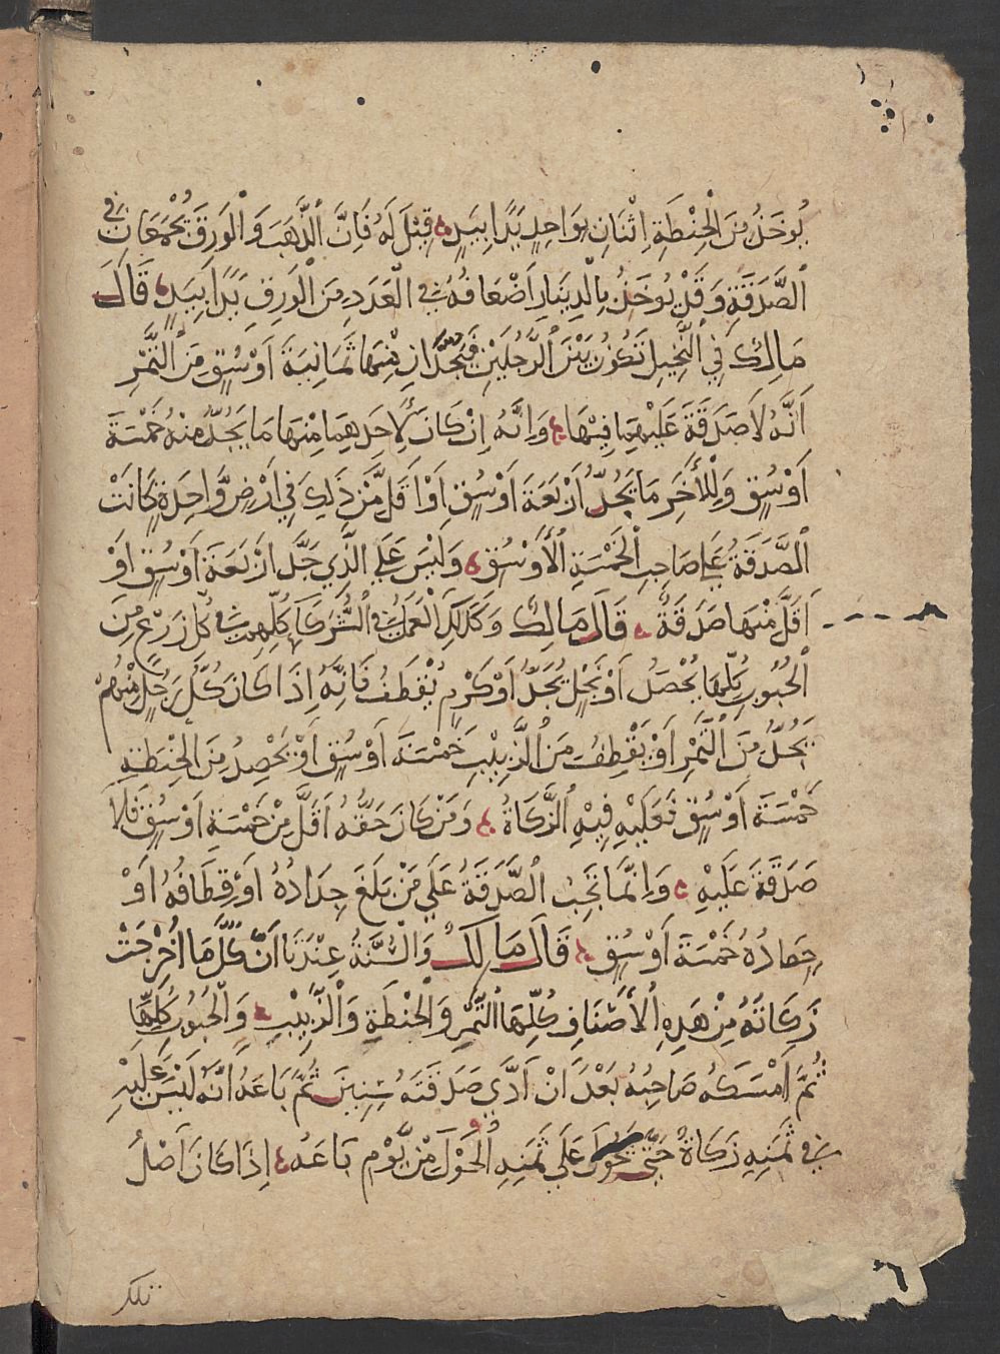 يُوخَذُ مِنَ الْحِنْطَةِ اِثْنَانِ بِوَاحِدٍ يَدًا بِيَدٍ قِيْلَ لَهُ فَاِنَّ الذَّهَبَ وَالْوَرِقَ يُجْمَعَانِ فِي
الصَّدَقَةِ وَقَدْ يُوخَذُ بِالدِّيْنَارِ اَضْعَافُهُ فِي الْعَدَدِ مِنَ الْوَرِقِ يَدًا بِيَدٍ قَالَ
مَالِكٌ فِي النَّخِيلِ تَكُوْنُ بَيْنَ الرَّجُلَيْنِ فَيَجُدَّانِ مِنْهَا ثَمَانِيَةَ اَوْسُقٍ مِنَ التَّمْرِ
اَنَّهُ لَا صَدَقَةَ عَلَيْهِمَا فِيْهَا وَاِنَّهُ اِنْ كَانَ لِاَحَدِهِمَا مِنْهَا مَا يَجُدُّ مِنْهُ خَمْسَةَ
اَوْسُقٍ وَلِلْأَخَرِ مَا يَجُدُّ اَرْبَعَةَ اَوْسُقٍ اَوْ اَقَلَّ مِّنْ ذَلِكَ فِي اَرْضٍ وَّاحِدَةٍ كَانَتْ
الصَّدَقَةُ عَلَى صَاحِبِ الْخَمْسَةِ الْأَوْسُقِ وَلَيْسَ عَلَى الَّذِي جَدَّ اَرْبَعَةَ اَوْسُقٍ اَوْ
اَقَلَّ مِنْهَا صَدَقَةٌ قَالَ مَالِكٌ وَكَذَلِكَ الْعَمَلُ فِي الشُّرَكَاءِ كُلِّهِمْ فِي كُلِّ زَرْعٍ مِنَ
الْحُبُوبِ كُلِّهَا يُحْصَدُ اَوْ نَخْلٍ يُجَدُّ اَوْ كَرْمٍ يُقْطَفُ فَاِنَّهُ اِذَا كَانَ كُلُّ رَجُلٍ مِنْهُمْ
يَجُدُّ مِنَ التَّمْرِ اَوْ يَقْطِفُ مِنَ الزَّبِيْبِ خَمْسَةَ اَوْسُقٍ اَوْ يَحْصِدُ مِنَ الْحِنْطَةِ
خَمْسَةَ اَوْسُقٍ فَعَلَيْهِ فِيْهِ الزَّكَاةُ وَمَنْ كَانَ حَقُّهُ اَقَلَّ مِنْ خَمْسَةِ اَوْسُقٍ فَلَا
صَدَقَةَ عَلَيْهِ وَاِنَّمَا تَجِبُ الصَّدَقَةُ عَلَى مَنْ بَلَغَ جِدَادُهُ اَوْ قِطَافُهُ اَوْ
حِصَادُهُ خَمْسَةَ اَوْسُقٍ قَالَ مَالِكٌ وَالسُّنَّةُ عِنْدَنَا اَنَّ كُلَّ مَا اُخْرِجَتْ
زَكَاتُهُ مِنْ هَذِهِ الْأَصْنَافِ كُلِّهَا التَّمْرِ وَالْحِنْطَةِ وَالزَّبِيْبِ وَالْحُبُوبِ كُلِّهَا
ثُمَّ اَمْسَكَهُ صَاحِبُهُ بَعْدَ اَنْ اَدَّى صَدَقَتَهُ سِنِينَ ثُمَّ بَاعَهُ اَنَّهُ لَيْسَ عَلَيْهِ
فِي ثَمَنِهِ زَكَاةٌ حَتَّى يَحُوْلَ عَلَى ثَمَنِهِ الْحَوْلُ مِنْ يَّوْمِ بَاعَهُ اِذَا كَانَ اَصْلُ
تلك
٦